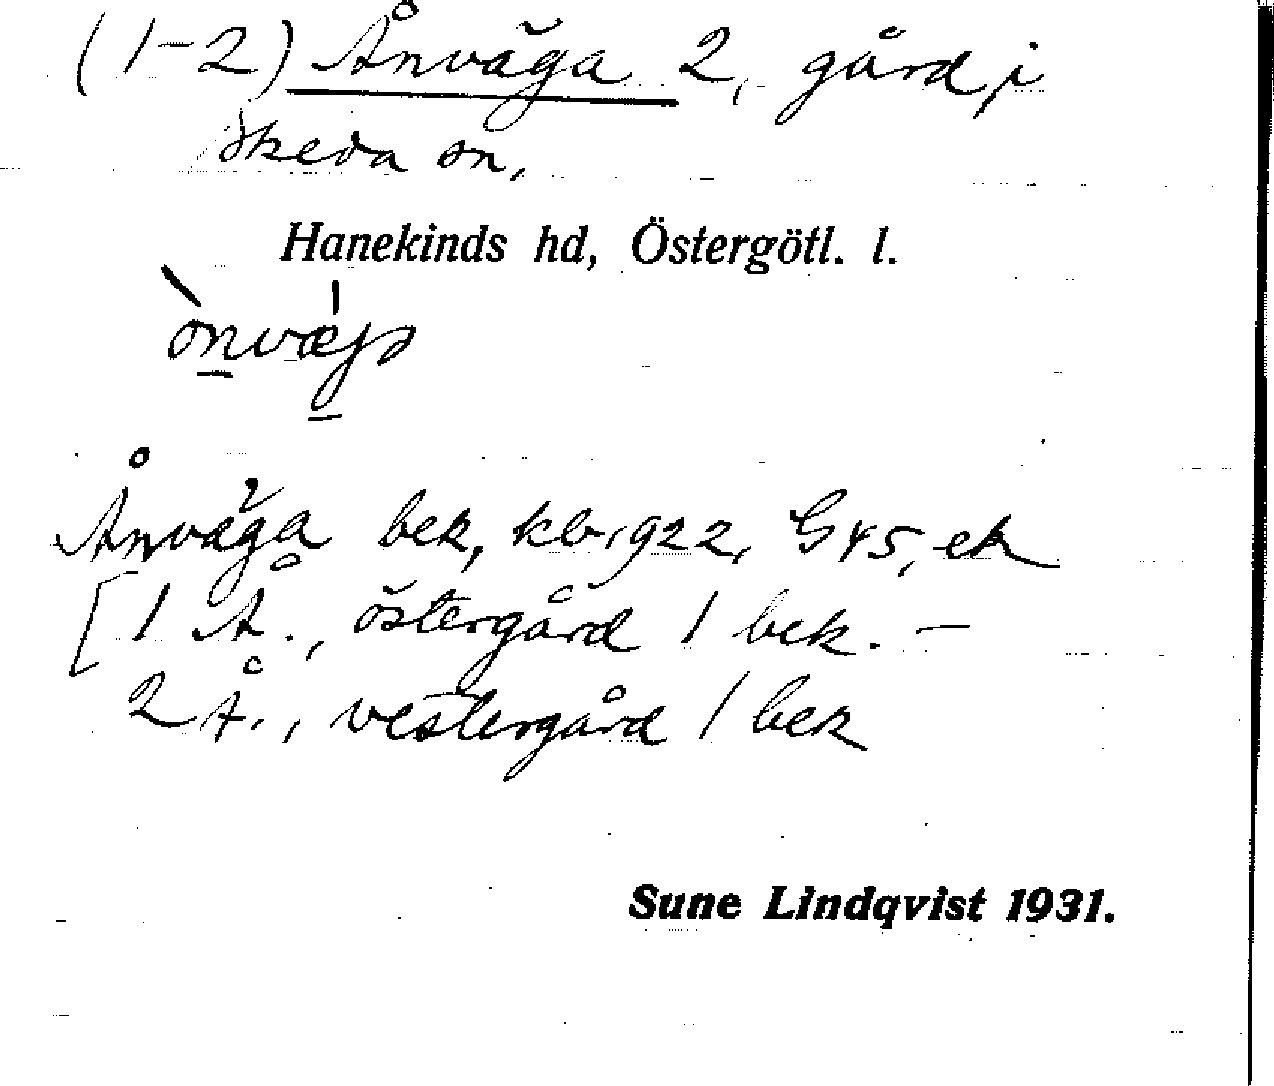 (1-2) Ånväga 2, gård, i
Skeda sn,
Hanekinds hd, Östergötl. l.
ònvæ̍jə
Ånväga bek, kb. 922, G45, ek
[1 Å., östergård 1 bek. —
2 Å., vestergård 1 bek
Sune Lindqvist 1931.